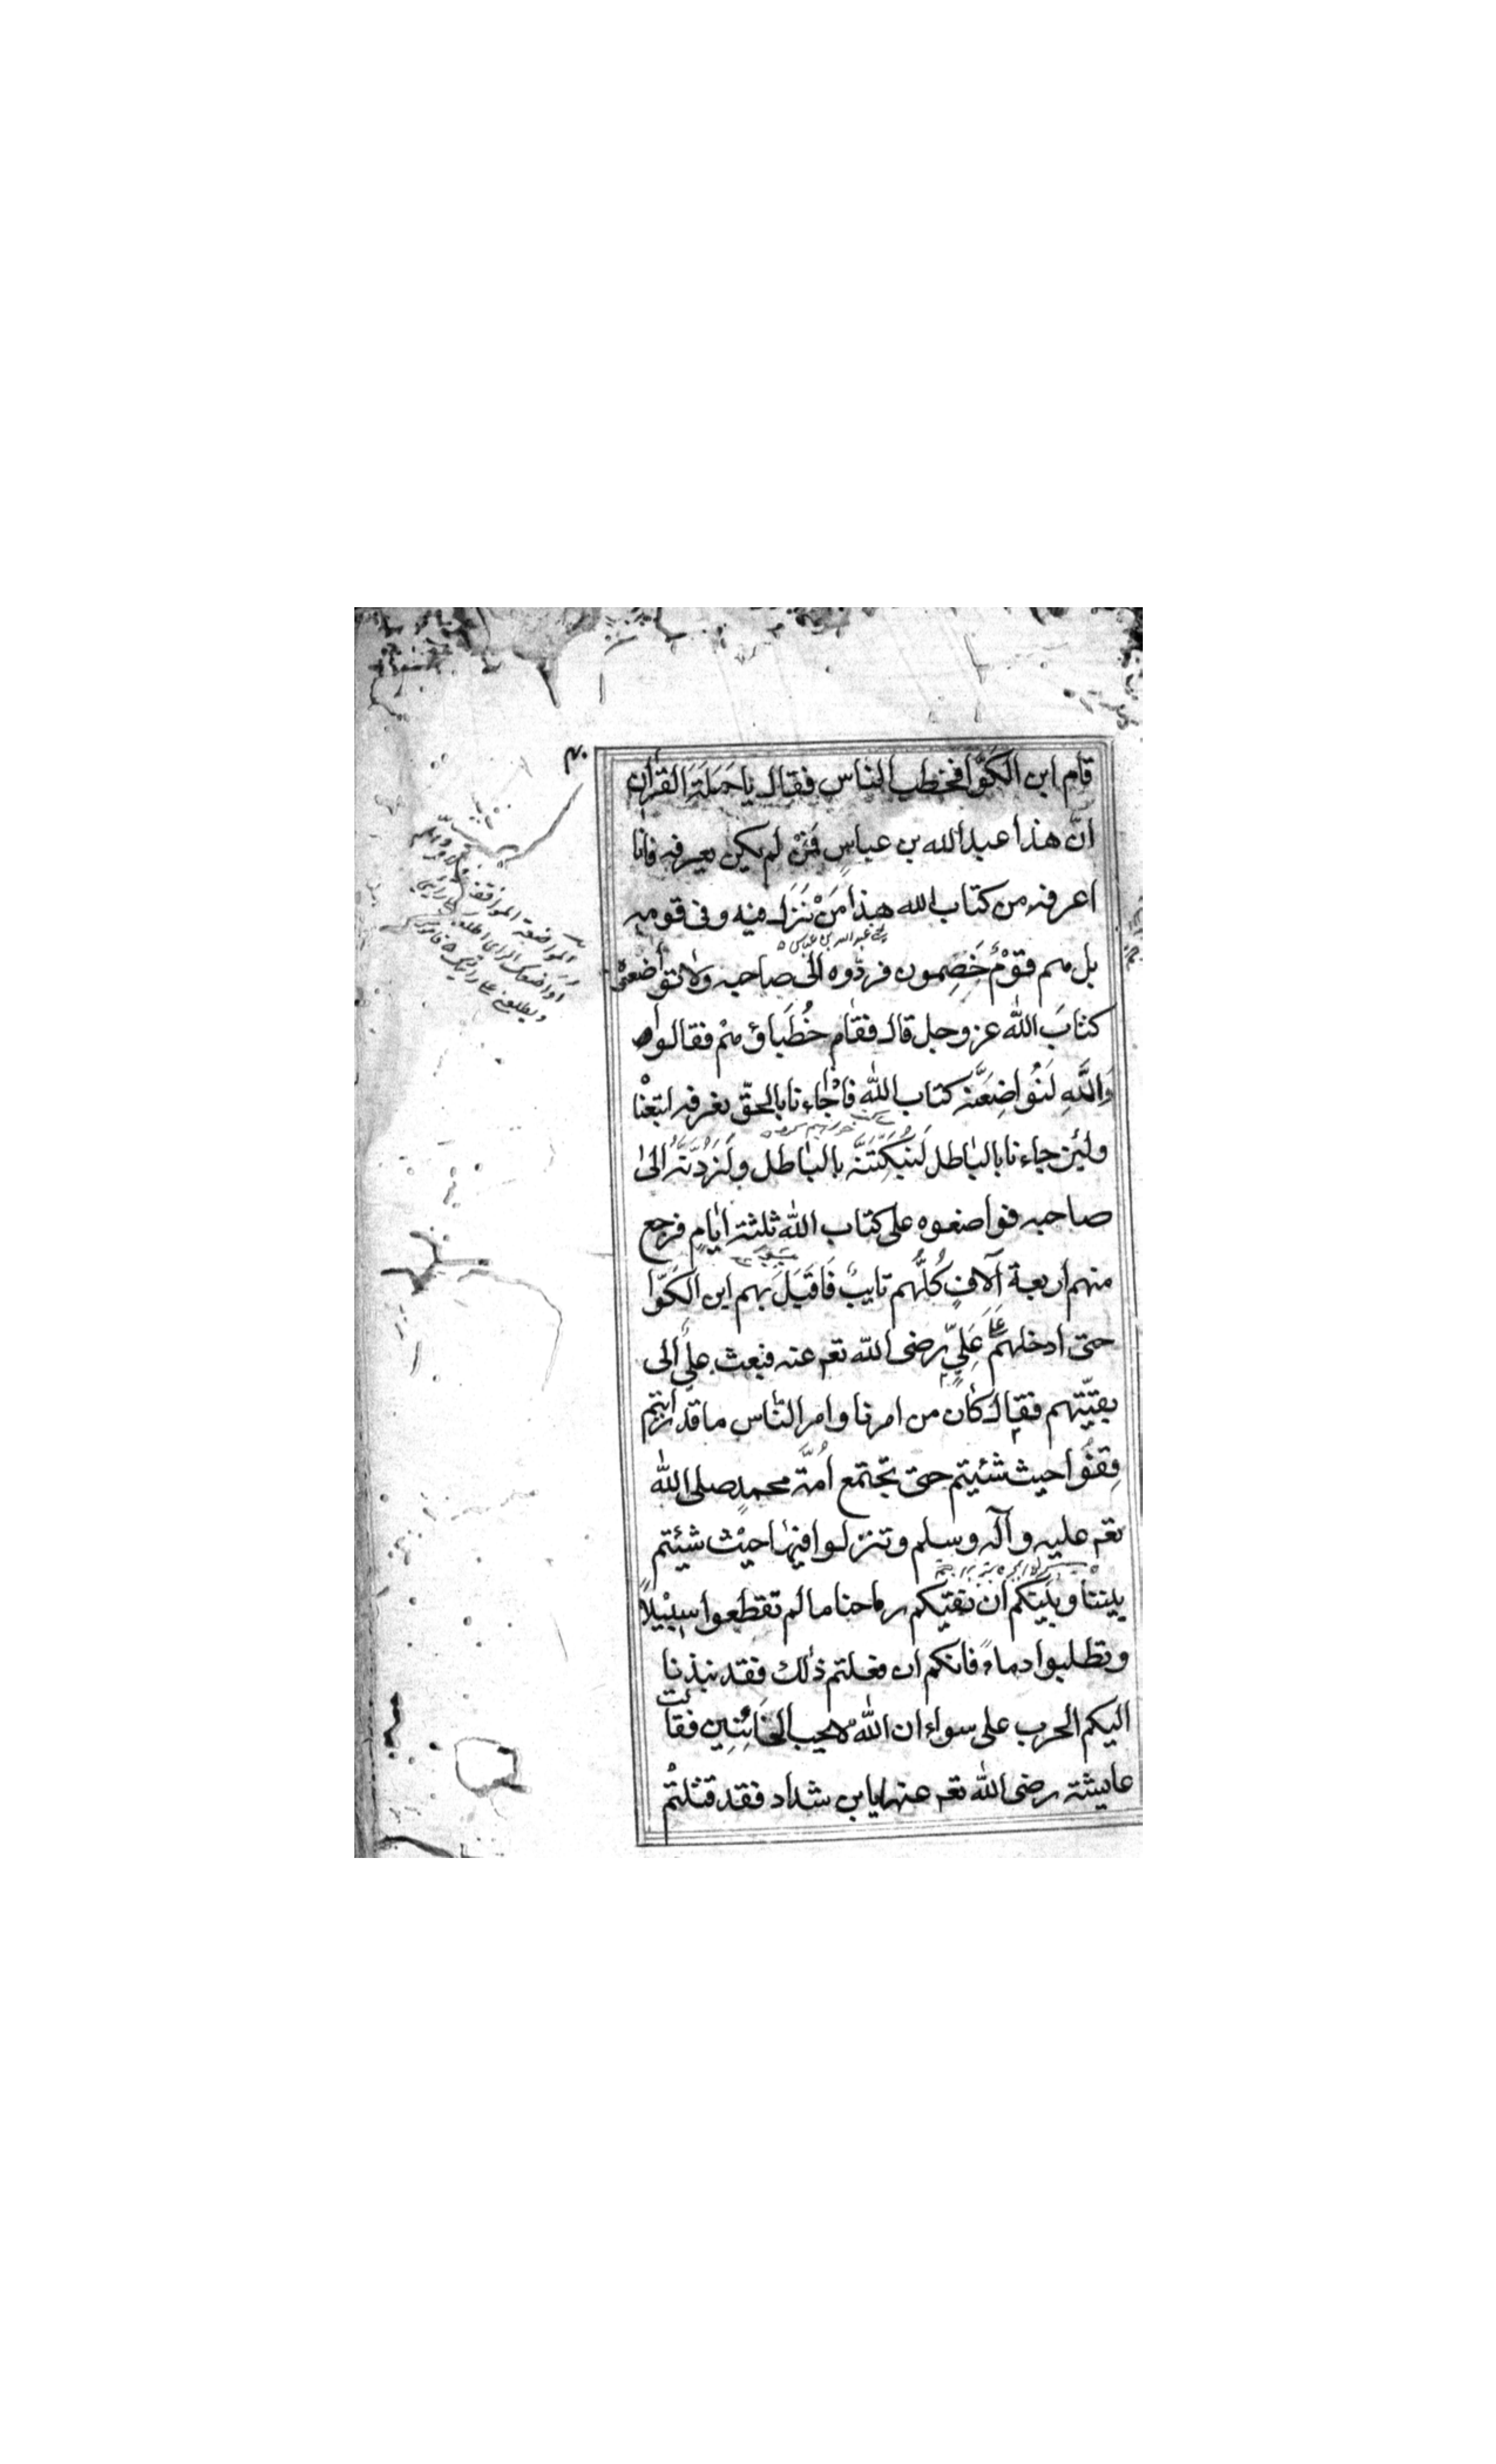 قام ابن الكَوَّا فخطب الناس فقال يا حَمَلَةَ القرآن
انّ هذا عبد الله بن عباسٍ فَمَنْ لم يكن يعرفه فانا
اعرفه من كتاب الله هذا مَنْ نَزَلَ فيه وفى قومه
بل هم قَوْمٌ خَصِمون فردّوه الى صاحبه ولا تواضعوه
كتابَ الله عز وجل قال فقام خُطَباؤهم فقالوا
وَاللَّهِ لَنُواضِعَنَّه كتاب الله فان جاءنا بالحقّ نعرفه اتبعْنا
ولَئِن جاءنا بالباطل لَنُبَكِّتَنَّه بالباطل ولَنَرُدَّنَّه الى
صاحبه فواضعوه على كتاب الله ثلثة ايامٍ فرجع
منهم اربعة آلافٍ كُلُّهم تايبٌ فَاَقبَلَ بهم ابن الكَوّا
حتى ادخلهم على عَلِيّ رضى الله تعه عنه فبعث علي الى
بقيّتهم فقال كان من امرنا وامر الناس ما قد رايتم
فِقفُوا حيث شئيتم حتى تجتمع اُمّة محمدٍ صلى الله
تعه عليه وآله وسلم وتنزلوا فيها حيث شئتم
بيننا وبينكم ان نقيكم رماحنا ما لم تقطعوا سبيلاً
وتطلبوا دماءً فانكم ان فعلتم ذلك فقد نبذنا
اليكم الحرب على سواء ان الله لا يحب الخائنين فقالت
عايشة رضى الله تعه عنها يابن شداد فقد قتلتم
اى عبد الله بن عباس
المواضعة الموافقة